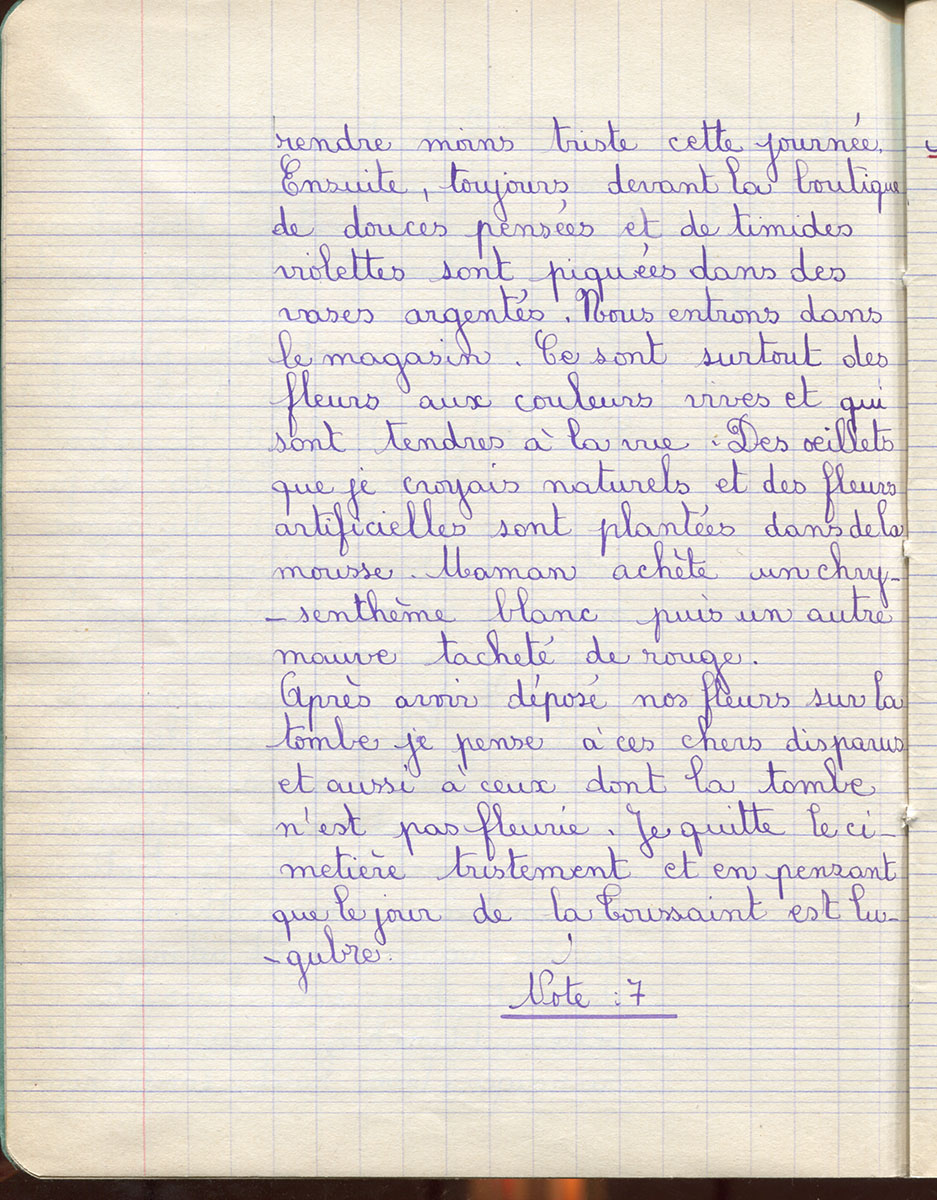 rendre moins triste cette journée.
Ensuite, toujours devant la boutique
de douces pensées et de timides
violettes sont piquées dans des
vases argentés. Nous entrons dans
le magasin. Ce sont surtout des
fleurs aux couleurs vives et qui
sont tendres à la vue. Des œillets
que je croyais naturels et des fleurs
artificielles sont plantées dans de la
mousse. Maman achète un chry-
-senthème blanc puis un autre
mauve tacheté de rouge.
Après avoir déposé nos fleurs sur la
tombe je pense à ces chers disparus
et aussi à ceux dont la tombe
n'est pas fleurie. Je quitte le ci-
metière tristement et en pensant
que le jour de la Toussaint est lu-
-gubre.
Note : 7